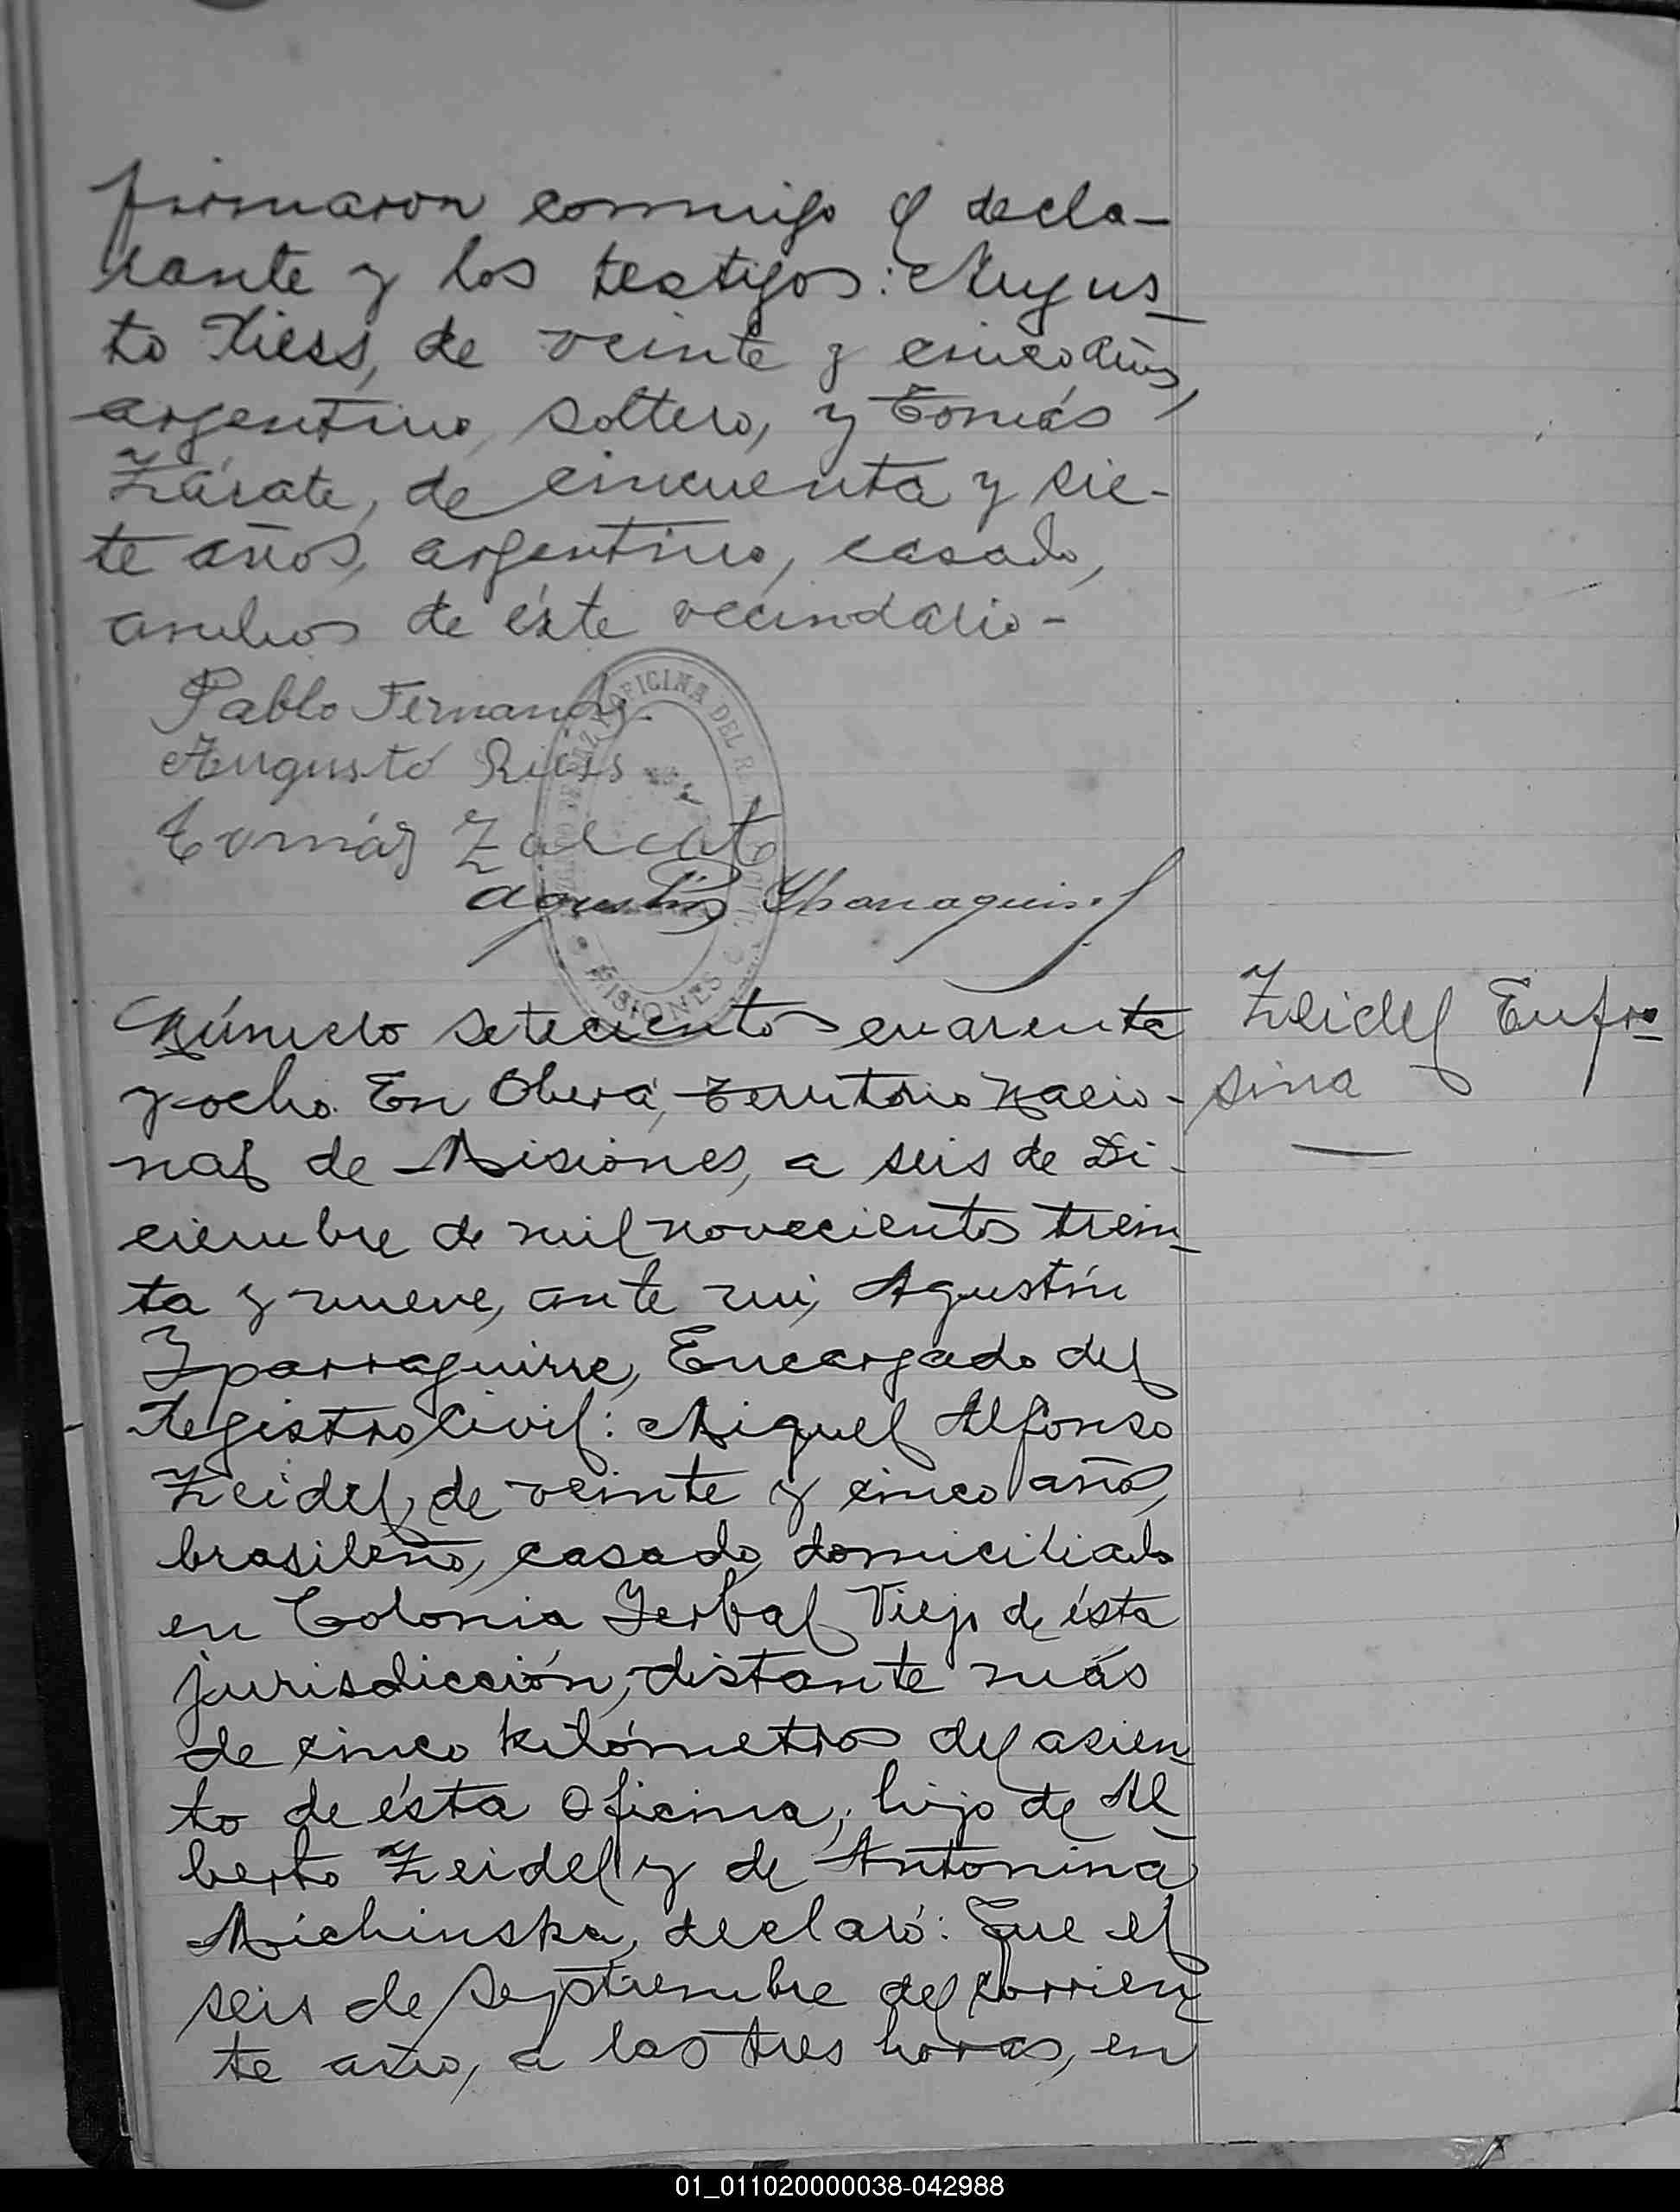 firmaron conmigo el decla-
rante y los testigos: Augus-
to Riess, de veinte y cinco años,
argentino, soltero, y Tomás
Zárate, de cincuenta y sie-
te años, argentino, casado,
ambos de éste vecindario-
Pablo Fernandz.
Augusto Riess
Tomás Zarate
Agustin Yparraguirre
OFICINA DEL
MISIONES
Número setecientos cuarenta
y ocho. En Oberá, Territorio Nacio-
nal de Misiones, a seis de Di-
ciembre de mil novecientos trein-
ta y nueve, ante mi, Agustín
Yparraguirre, Encargado del
Registro Civil: Miguel Alfonso
Zeidel, de veinte y cinco años,
brasileño, casado, domiciliado
en Colonia Yerbal Viejo de ésta
jurisdicción, distante más
de cinco kilómetros del asien-
to de ésta Oficina, hijo de Al-
berto Zeidel y de Antonina
Michinska, declaró: Que el
seis de Septiembre del corrien-
te año, a las tres horas, en
Zeidel Eufro-
sina
01_011020000038-042988